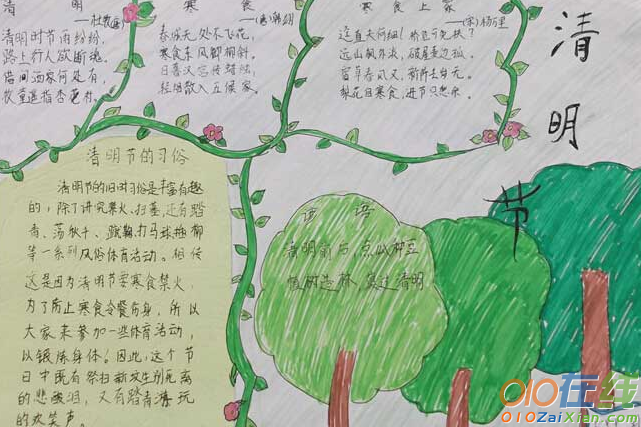 清明
—杜牧
清明时节雨纷纷，
路上行人欲断魂。
借问酒家何处有，
牧童遥指杏花村。
寒食
春城无处不飞花，
寒食东风御柳斜。
日暮汉宫传蜡烛，
轻烟散入五侯家。
寒食上冢
—(宋)杨万里
远山枫外淡，破屋麦边孤。
宿草春风又，新阡去岁无。
梨花自寒食，进节只愁余。
清明节
清明节的习俗
清明节的旧时习俗是丰富有趣
的，除了讲究禁火、扫墓，还有踏
青、荡秋千、蹴鞠打马球插柳
等一系列风俗体育活动。相传
这是因为清明节要寒食禁火，
为了防止寒食冷餐伤身，所以
大家来参加一些体育活动，
以锻炼身体。因此，这个节
日中既有祭扫新坟生别死离
的悲酸泪，又有踏青游玩
的欢笑声。
谚语
清明前后，点瓜种豆
植树造林，莫过清明
010在线
010ZaiXian.com